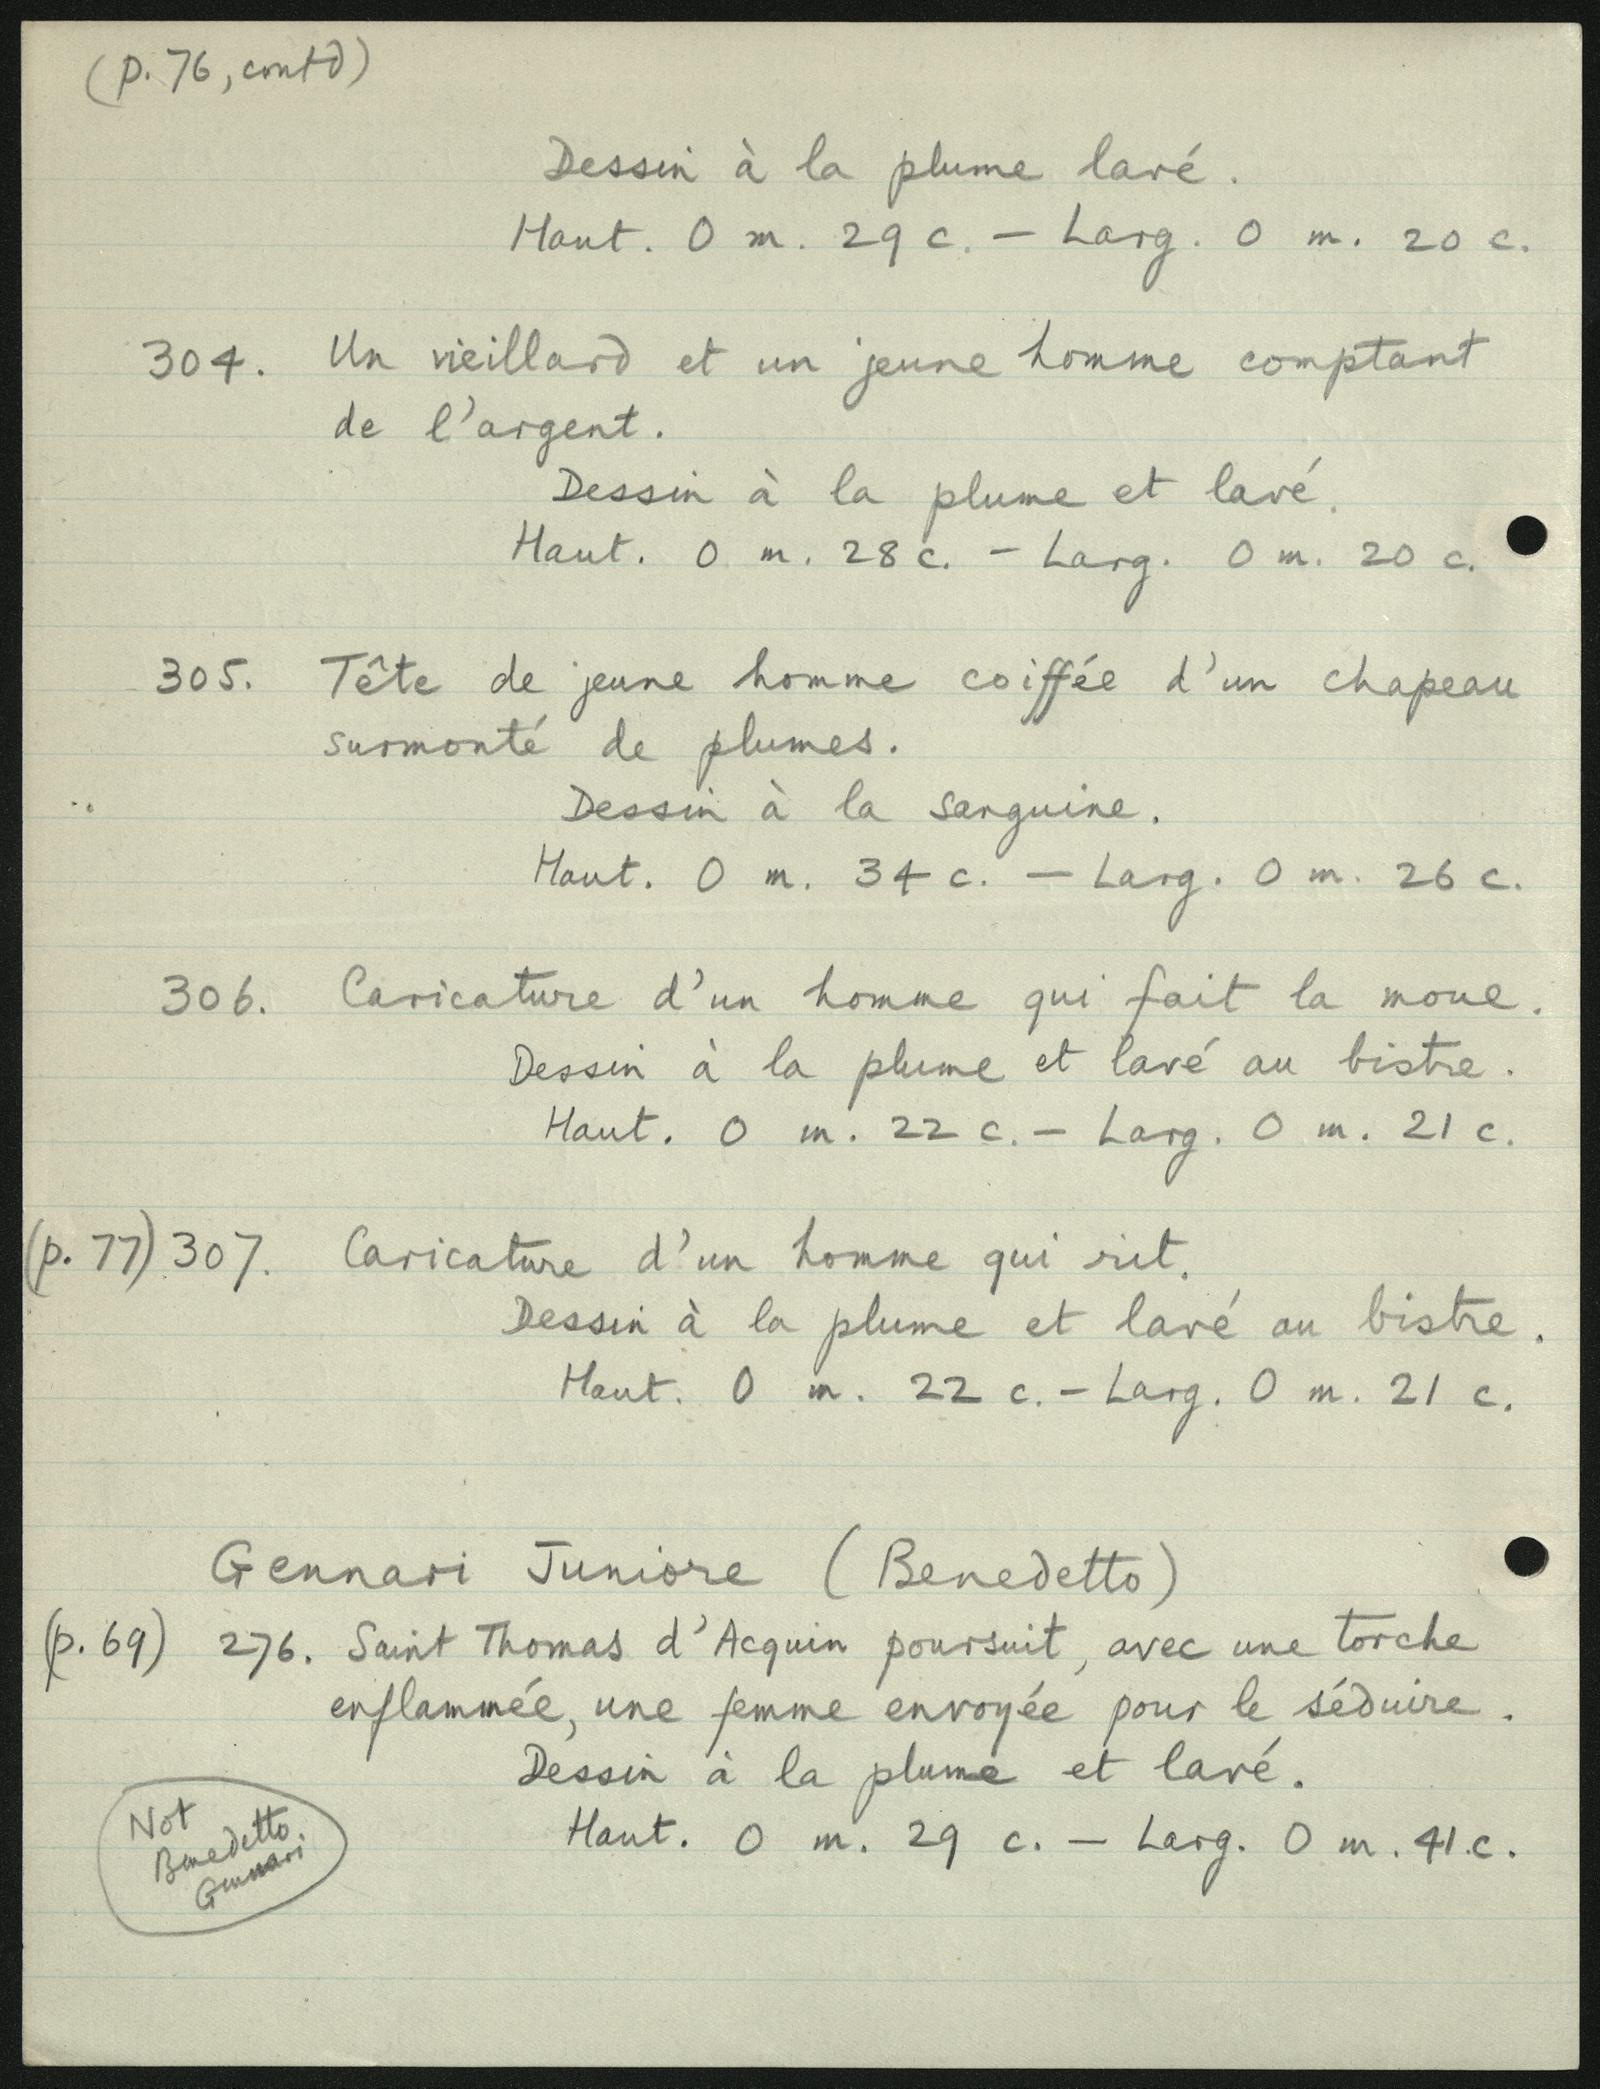 (p. 76, contd)
Dessin à la plume lavé.
Haut. 0 m. 29 c. — Larg. 0 m. 20 c.
304. Un vieillard et un jeune homme comptant
de l'argent.
Dessin à la plume et lavé.
Haut. 0 m. 28 c. - Larg. 0 m. 20 c.
305. Tête de jeune homme coiffée d'un chapeau
surmonté de plumes.
Dessin à la sanguine.
Haut. 0 m. 34 c. — Larg. 0 m. 26 c.
306. Caricature d'un homme qui fait la moue.
Dessin à la plume et lavé au bistre.
Haut. 0 m. 22 c. - Larg. 0 m. 21 c.
(p. 77) 307. Caricature d'un homme qui rit.
Dessin à la plume et lavé au bistre.
Haut. 0 m. 22 c. - Larg. 0 m. 21 c.
Gennari Juniore (Benedetto)
(p. 69) 276. Saint Thomas d'Acquin poursuit, avec une torche
enflammée, une femme envoyée pour le séduire.
Dessin à la plume et lavé.
Haut. 0 m. 29 c. — Larg. 0 m. 41.c.
Not
Benedetto
Gennari